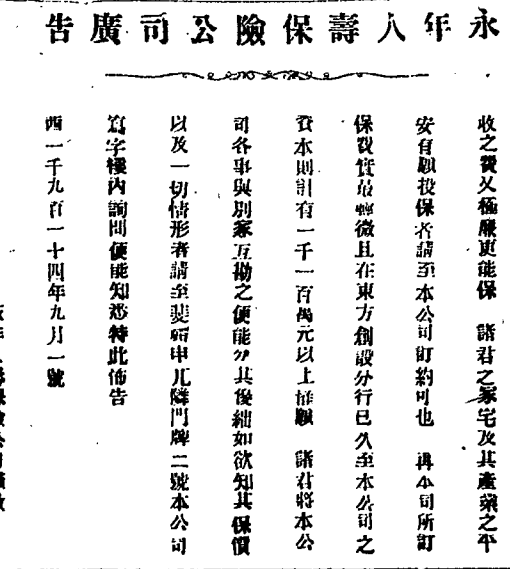 永年人壽保險公司廣告
收之費又極廉更能保 諸君之家宅及其產業之平
安有願投保者請至本公司訂約可也 再本司所訂
保費實最輕微且在東方創設分行已久至本公司之
資本則計有一千一百萬元以上茲願 諸君將本公
司各事與別家互勘之便能分其優絀如欲知其保價
以及一切情形者請至 隣門牌二號本公司
寫字樓內詢問便能知悉特此佈告
西一千九百一十四年九月一號